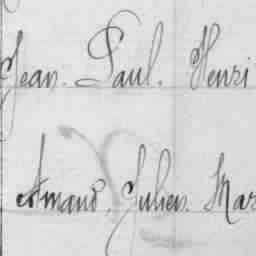 Jean. Paul. Henri
Armand. Julien. Mar